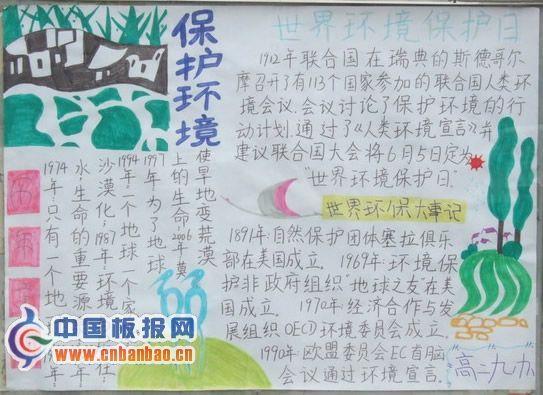 保护环境
世界环境保护日
1912年联合国在瑞典的斯德哥尔
摩召开了有113个国家参加的联合国人类环
境会议.会议讨论了保护环境的行
动计划.通过了《人类环境宣言》并
建议联合国大会将6月5日定为
"世界环境保护日."
世界环保大事记
1891年:自然保护团体塞拉俱乐
部在美国成立. 1969年:环境保
护非政府组织"地球之友"在美
国成立. 1970年:经济合作与发
展组织OECD环境委员会成立.
1990年:欧盟委员会EC首脑
会议通过环境宣言.
高二九办
1974年:只有一个地
水生命的重要源
沙漠化.1987年:环境
1994年一个地球一个家
1997年为了地球
上的生命2006年莫
使旱地变荒漠
中国板报网
www.cnbanbao.cn